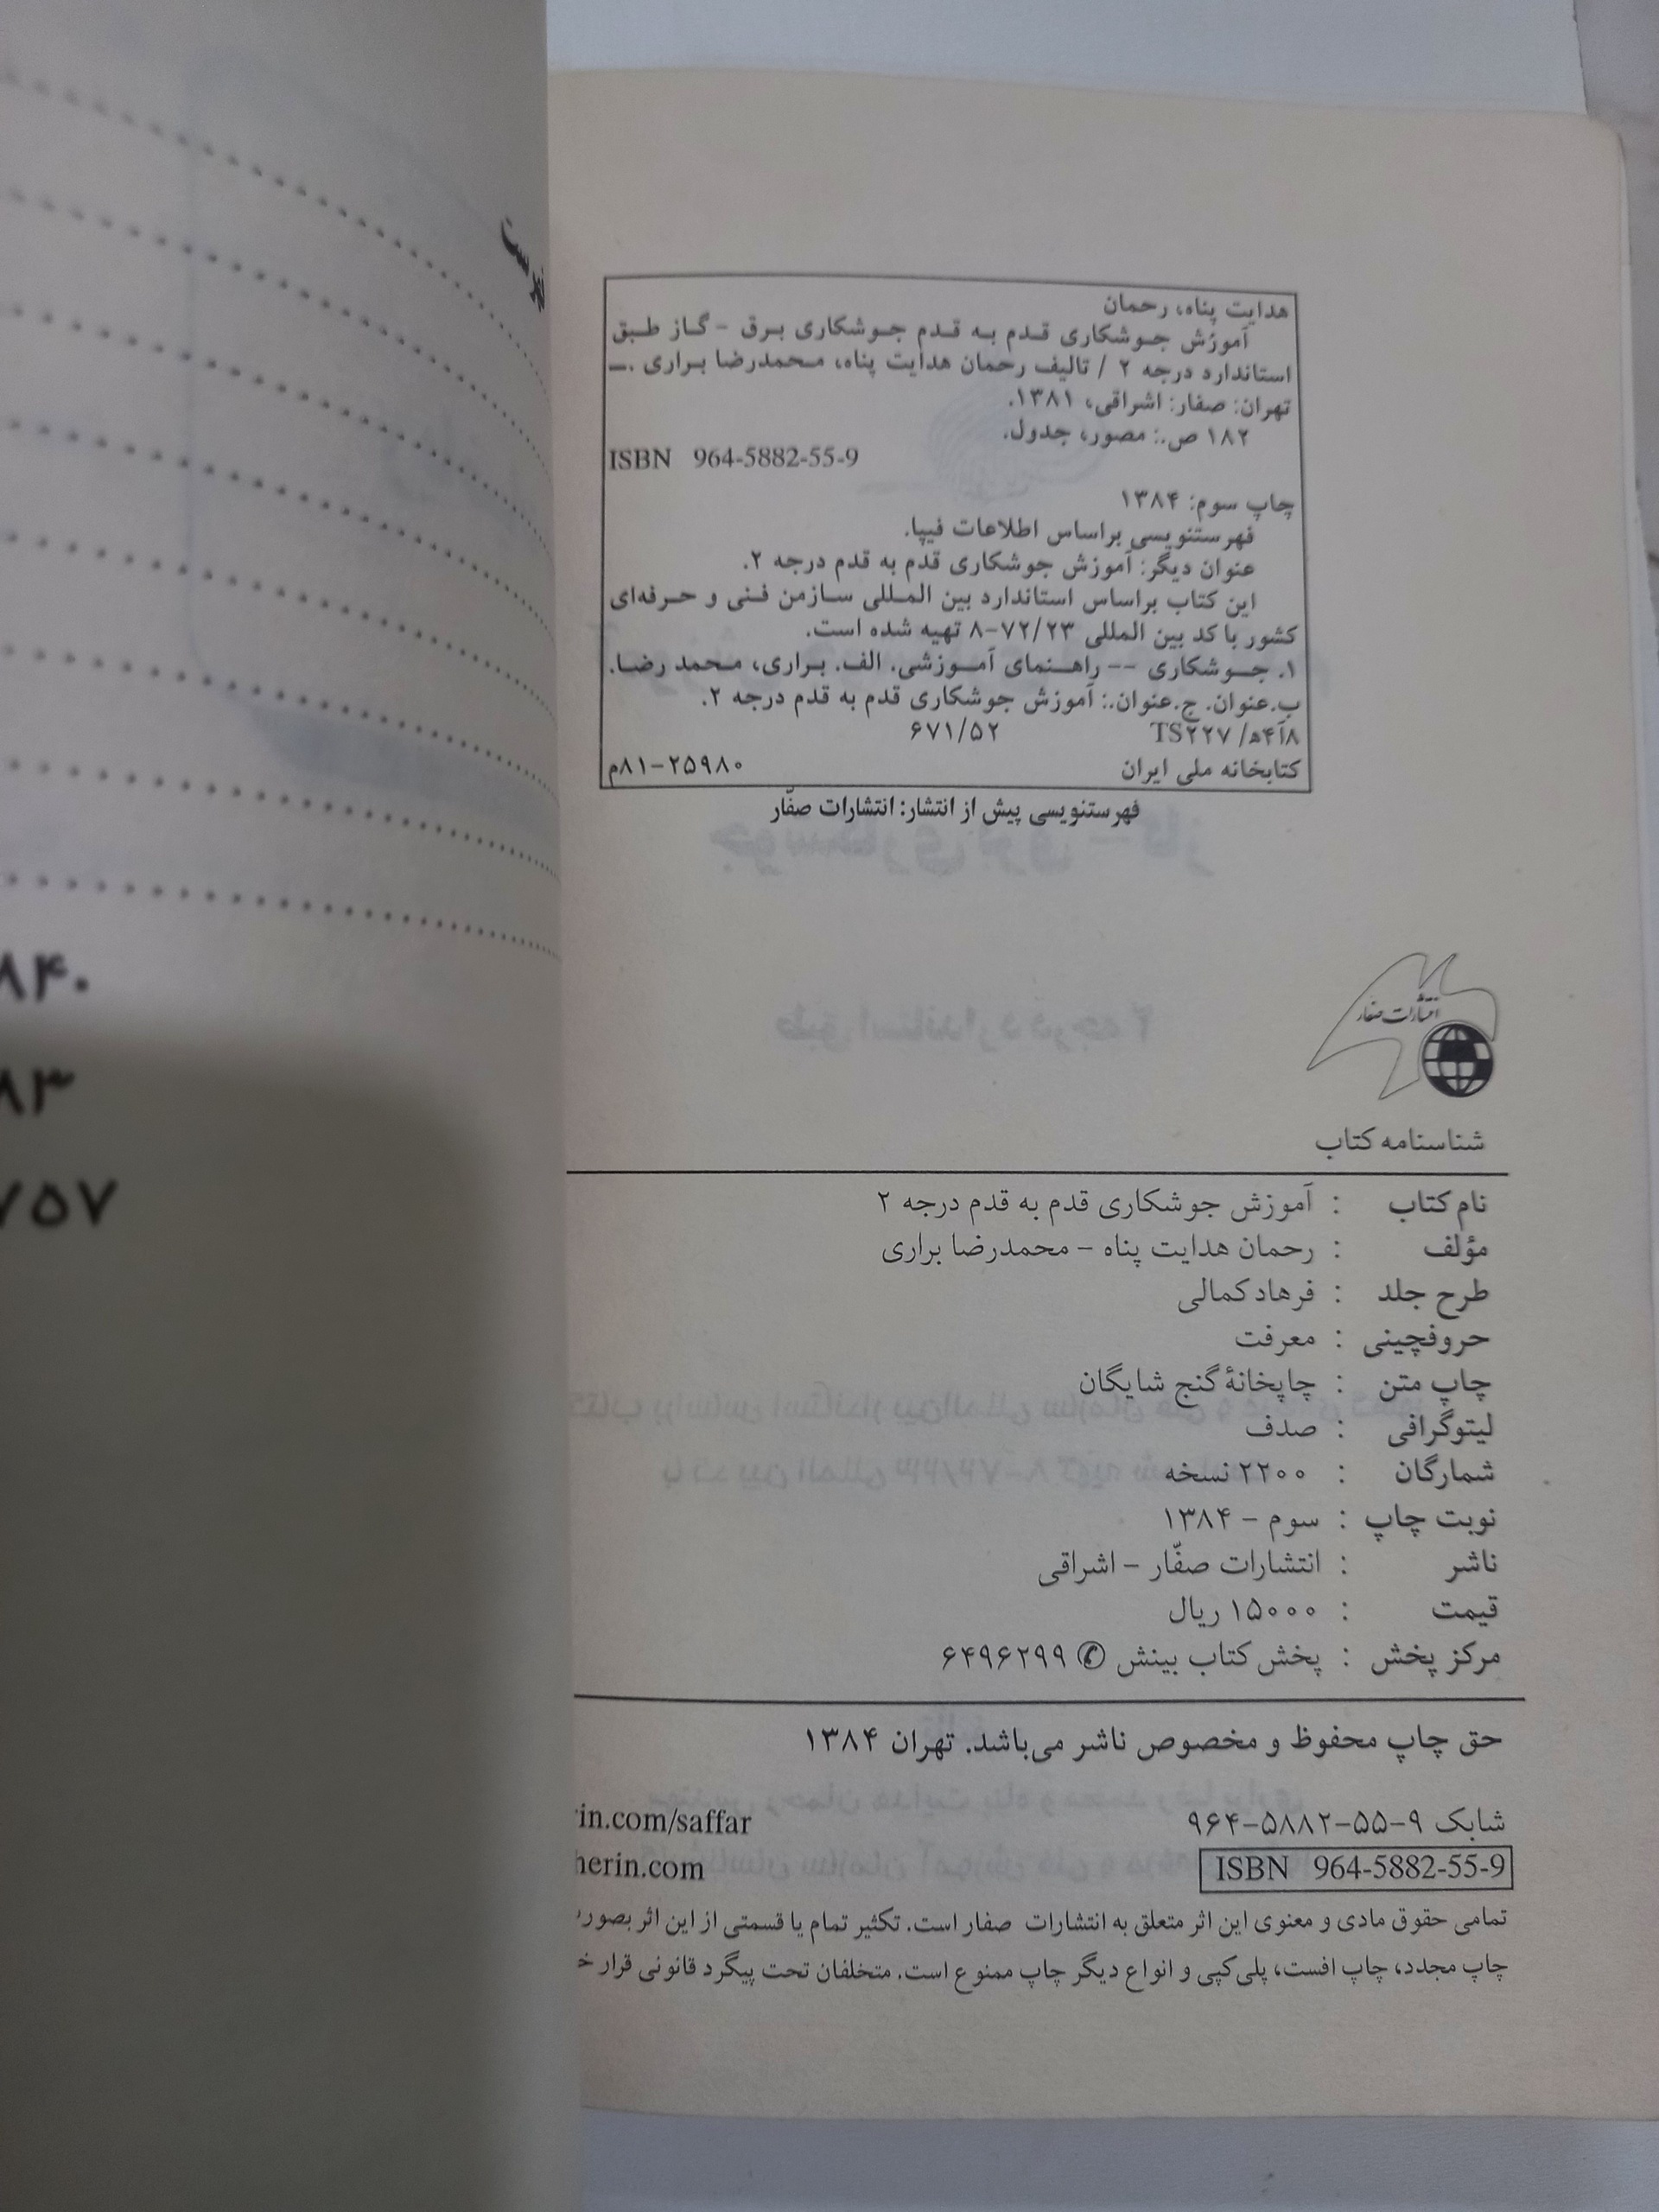 هدایت پناه، رحمان
آموزش جوشکاری قدم به قدم جوشکاری برق - گاز طبق
استاندارد درجه ۲ / تالیف رحمان هدایت پناه، محمدرضا براری .ـ
تهران: صفار: اشراقی، ۱۳۸۱.
۱۸۲ ص.: مصور، جدول.
ISBN 964-5882-55-9
چاپ سوم: ۱۳۸۴
فهرستنویسی براساس اطلاعات فیپا.
عنوان دیگر: آموزش جوشکاری قدم به قدم درجه ۲.
این کتاب براساس استاندارد بین المللی سازمن فنی و حرفه‌ای
کشور با کد بین المللی ۸-۷۲/۲۳ تهیه شده است.
۱. جوشکاری -- راهنمای آموزشی. الف. براری، محمد رضا.
ب.عنوان. ج.عنوان.: آموزش جوشکاری قدم به قدم درجه ۲.
۸آ۴ه/ TS۲۲۷ ۶۷۱/۵۲
کتابخانه ملی ایران ۸۱-۲۵۹۸۰م
فهرستنویسی پیش از انتشار: انتشارات صفّار
انتشارات صفار
شناسنامه کتاب
نام کتاب : آموزش جوشکاری قدم به قدم درجه ۲
مؤلف : رحمان هدایت پناه - محمدرضا براری
طرح جلد : فرهاد کمالی
حروفچینی : معرفت
چاپ متن : چاپخانهٔ گنج شایگان
لیتوگرافی : صدف
شمارگان : ۲۲۰۰ نسخه
نوبت چاپ : سوم - ۱۳۸۴
ناشر : انتشارات صفّار - اشراقی
قیمت : ۱۵۰۰۰ ریال
مرکز پخش : پخش کتاب بینش ✆ ۶۴۹۶۲۹۹
حق چاپ محفوظ و مخصوص ناشر می‌باشد. تهران ۱۳۸۴
شابک ۹-۵۵-۵۸۸۲-۹۶۴
in.com/saffar
ISBN 964-5882-55-9
herin.com
تمامی حقوق مادی و معنوی این اثر متعلق به انتشارات صفار است. تکثیر تمام یا قسمتی از این اثر بصور
چاپ مجدد، چاپ افست، پلی‌کپی و انواع دیگر چاپ ممنوع است. متخلفان تحت پیگرد قانونی قرار خ